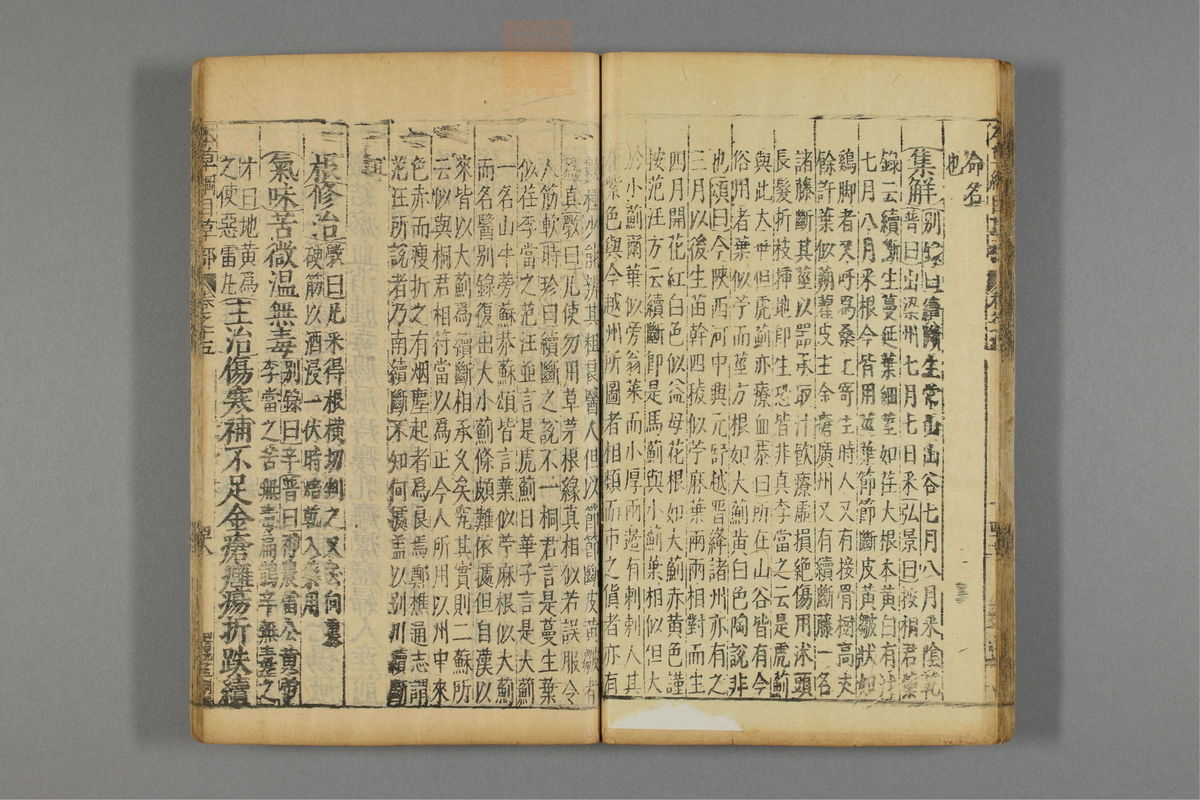 命名
也
集解別錄曰續斷生常山山谷七月八月采陰乾
普曰出梁州七月七日采弘景曰按桐君藥
錄云續斷生蔓延葉細莖如荏大根本黃白有汁
七月八月采根今皆用莖葉節節斷皮黃皺狀如
雞脚者又呼爲桑上寄生時人又有接骨樹高丈
餘許葉似蒴藋皮主金瘡廣州又有續斷藤一名
諾藤斷其莖以器承取汁飲療虛損絕傷用沐頭
長髮折枝揷地卽生恐皆非真李當之云是虎薊
與此大乖但虎薊亦療血恭曰所在山谷皆有今
俗用者葉似苧而莖方根如大薊黃白色陶說非
也頌曰今陝西河中興元舒越晉絳諸州亦有之
三月以後生苗幹四稜似苧麻葉兩兩相對而生
四月開花紅白色似益母花根如大薊赤黃色謹
按范汪方云續斷卽是馬薊與小薊葉相似但大
於小薊爾葉似旁翁菜而小厚兩邊有刺刺人其
花紫色與今越州所圖者相類而市之貨者亦有
數種少能辨其粗良醫人但以節節斷皮黃皺者
爲真斆曰凡使勿用草茅根緣真相似若誤服令
人筋軟時珍曰續斷之說不一桐君言是蔓生葉
似荏李當之范汪並言是虎薊日華子言是大薊
一名山牛蒡蘇恭蘇頌皆言葉似苧麻根似大薊
而名醫別錄復出大小薊條頗難依據但自漢以
來皆以大薊爲續斷相承久矣究其實則二蘇所
云似與桐君相符當以爲正今人所用以川中來
色赤而瘦折之有烟塵起者爲良焉鄭樵通志謂
范汪所說者乃南續斷不知何據蓋以別川續斷
耳
根修治斆曰凡采得根橫切剉之又去向裏
硬筋以酒浸一伏時焙乾入藥用
氣味苦微溫無毒別錄曰辛普曰神農雷公黃帝
李當之苦無毒扁鵲辛無毒之
才曰地黃爲
之使惡雷丸主治傷寒補不足金瘡癰瘍折跌續
本草綱目草部 卷之十五